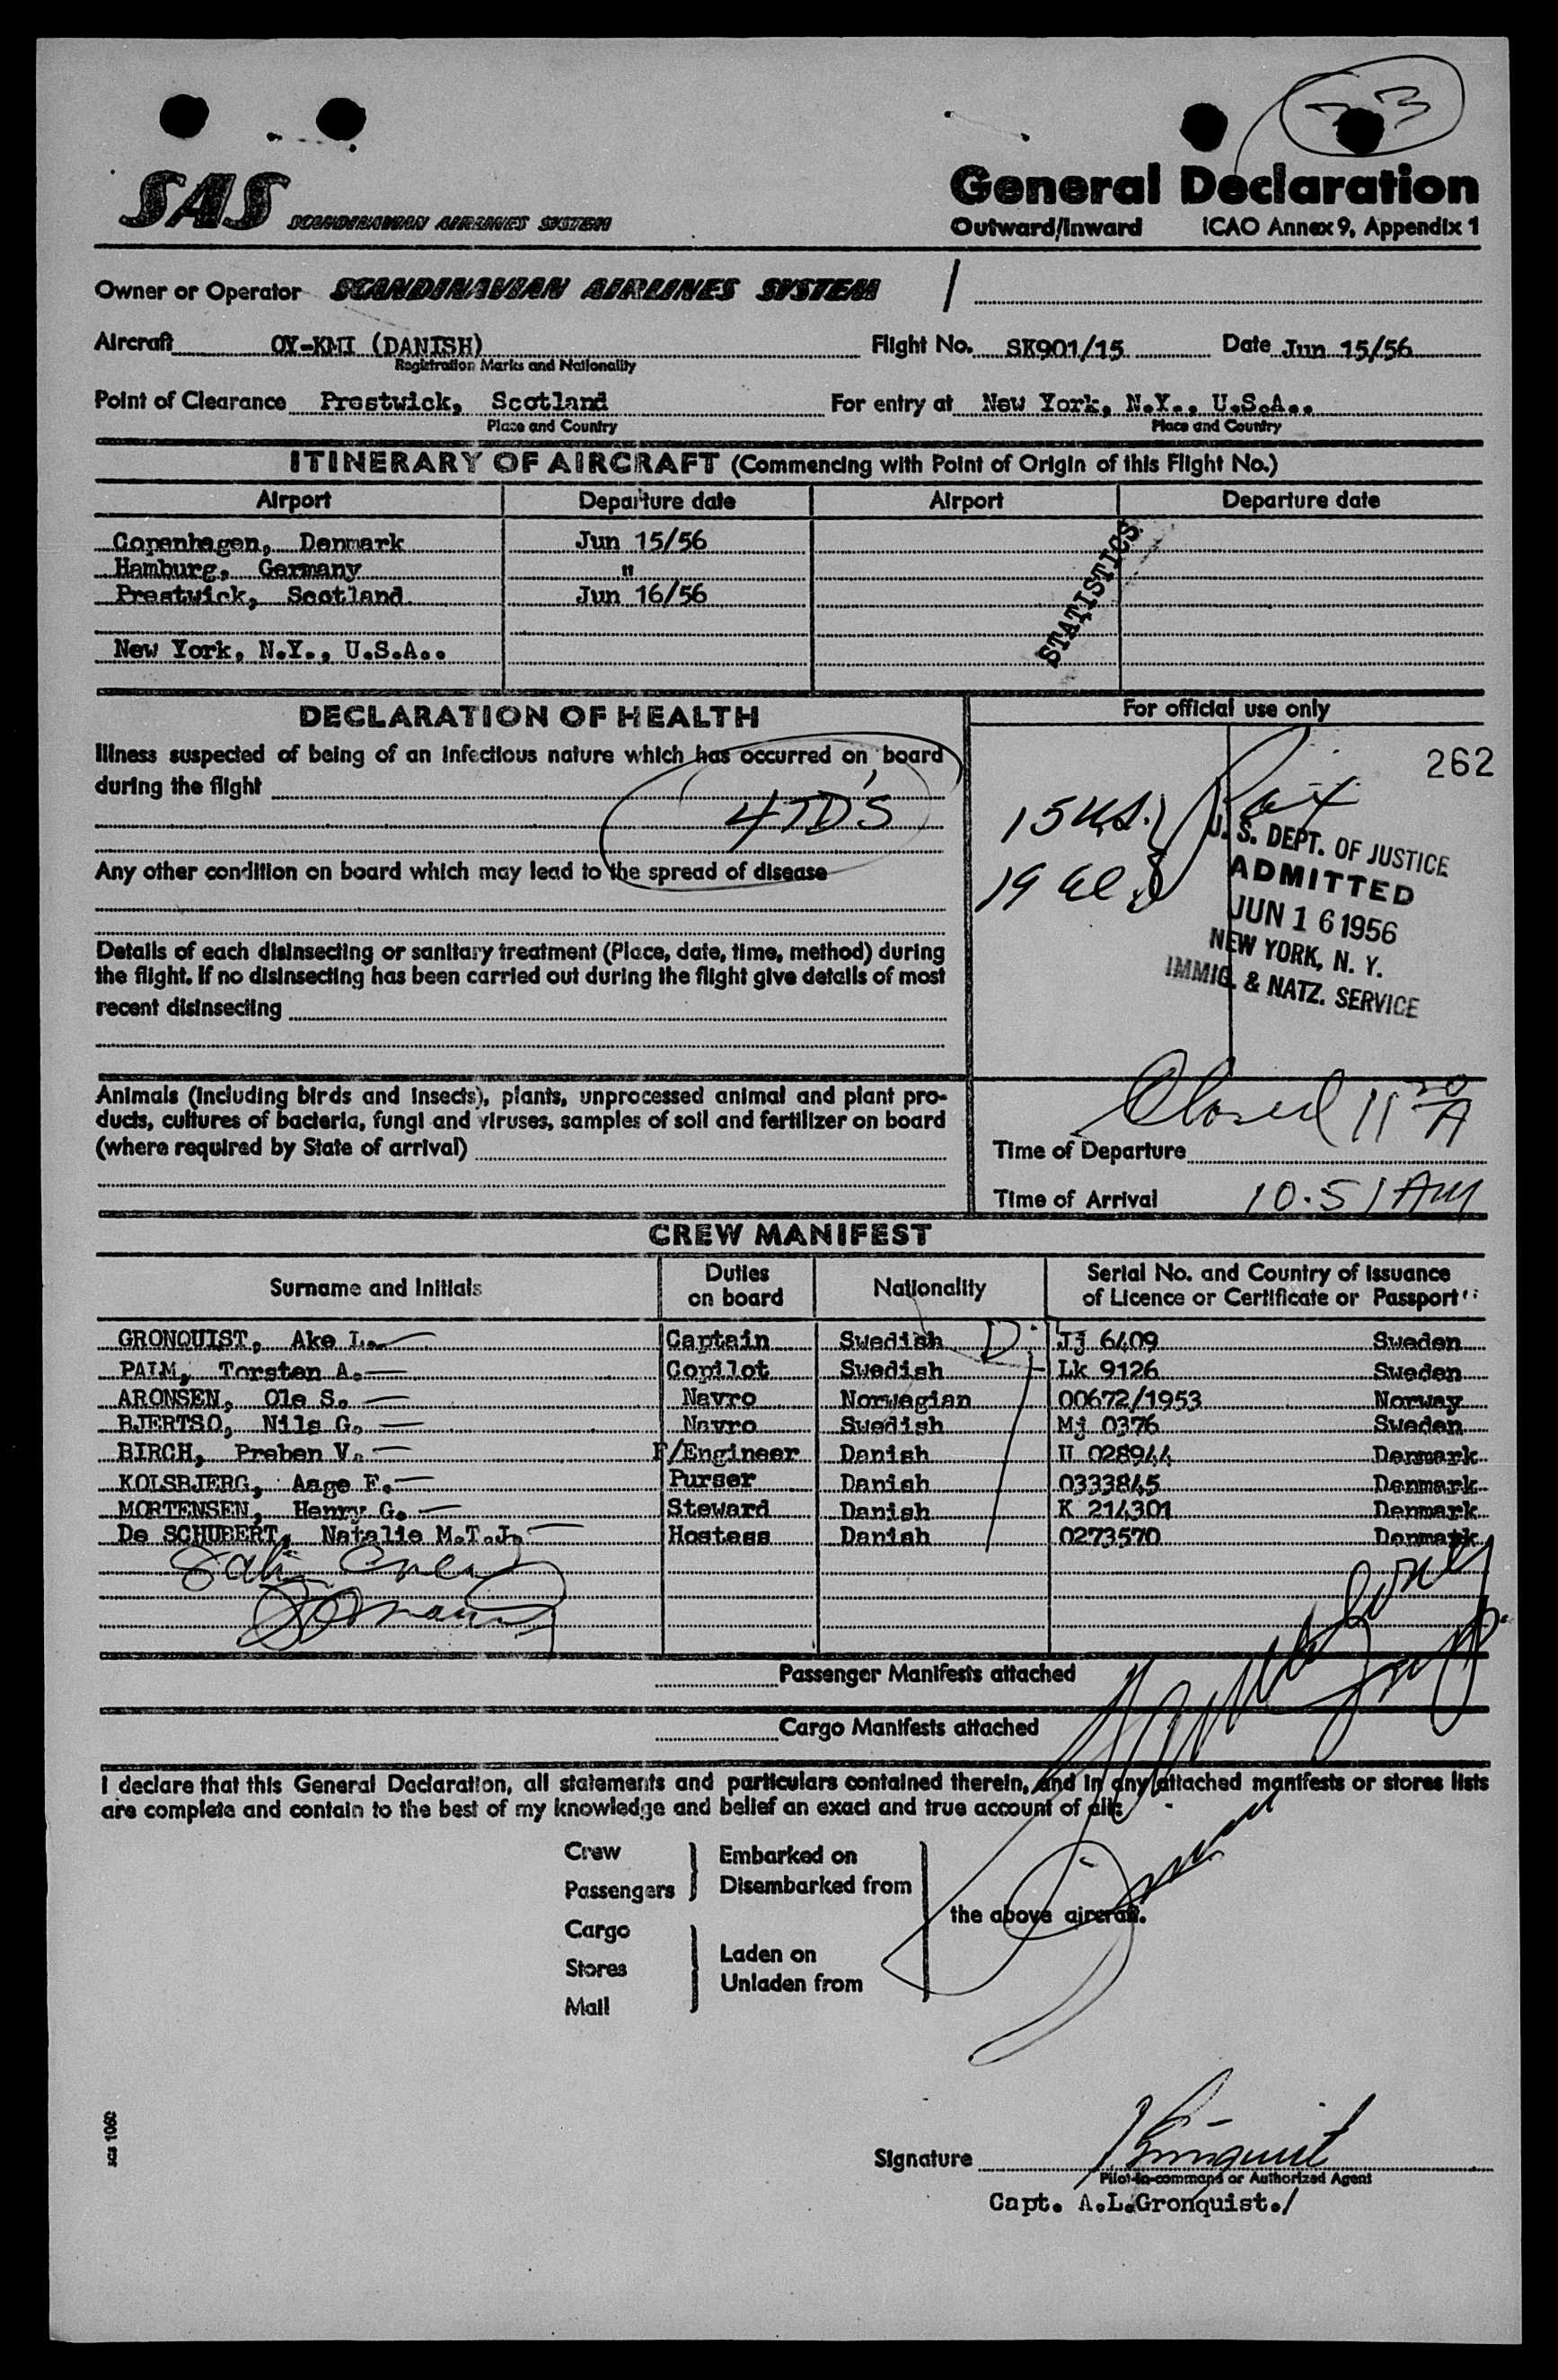 33
SAS SCANDINAVIAN AIRLINES SYSTEM
General Declaration
Outward/Inward ICAO Annex 9, Appendix 1
Owner or Operator SCANDINAVIAN AIRLINES SYSTEM /
Aircraft OY-KMI (DANISH) Flight No. SK901/15 Date Jun 15/56
Registration Marks and Nationality
Point of Clearance Prestwick, Scotland For entry at New York, N.Y., U.S.A..
Place and Country Place and Country
ITINERARY OF AIRCRAFT (Commencing with Point of Origin of this Flight No.)
Airport Departure date Airport Departure date
Copenhagen, Denmark Jun 15/56
Hamburg, Germany "
Prestwick, Scotland Jun 16/56
New York, N.Y., U.S.A..
STATISTICS
DECLARATION OF HEALTH
For official use only
Illness suspected of being of an infectious nature which has occurred on board
during the flight
4 TD'S
Any other condition on board which may lead to the spread of disease
Details of each disinsecting or sanitary treatment (Place, date, time, method) during
the flight. If no disinsecting has been carried out during the flight give details of most
recent disinsecting
262
15 U.S. Pax
19 al
U. S. DEPT. OF JUSTICE
ADMITTED
JUN 16 1956
NEW YORK, N. Y.
IMMIG. & NATZ. SERVICE
Animals (including birds and insects), plants, unprocessed animal and plant pro-
ducts, cultures of bacteria, fungi and viruses, samples of soil and fertilizer on board
(where required by State of arrival)
Closed 11 30 A
Time of Departure
Time of Arrival 10.51 AM
CREW MANIFEST
Surname and Initials Duties on board Nationality Serial No. and Country of Issuance of Licence or Certificate or Passport
GRONQUIST, Ake L. Captain Swedish D Jj 6409 Sweden
PALM, Torsten A. Copilot Swedish Lk 9126 Sweden
ARONSEN, Ole S. Navro Norwegian 00672/1953 Norway
BJERTSO, Nils G. Navro Swedish Mj 0376 Sweden
BIRCH, Preben V. F/Engineer Danish U 028944 Denmark
KOLSBJERG, Aage F. Purser Danish 0333845 Denmark
MORTENSEN, Henry G. Steward Danish K 214301 Denmark
De SCHUBERT, Natalie M.T.J. Hostess Danish 0273570 Denmark
Passenger Manifests attached
Cargo Manifests attached
I declare that this General Declaration, all statements and particulars contained therein, and in any attached manifests or stores lists
are complete and contain to the best of my knowledge and belief an exact and true account of all:
Crew
Passengers
Embarked on
Disembarked from
Cargo
Stores
Mail
Laden on
Unladen from
the above aircraft.
Signature Gronquist
Pilot-in-command or Authorized Agent
Capt. A.L.Gronquist./
scs 1060